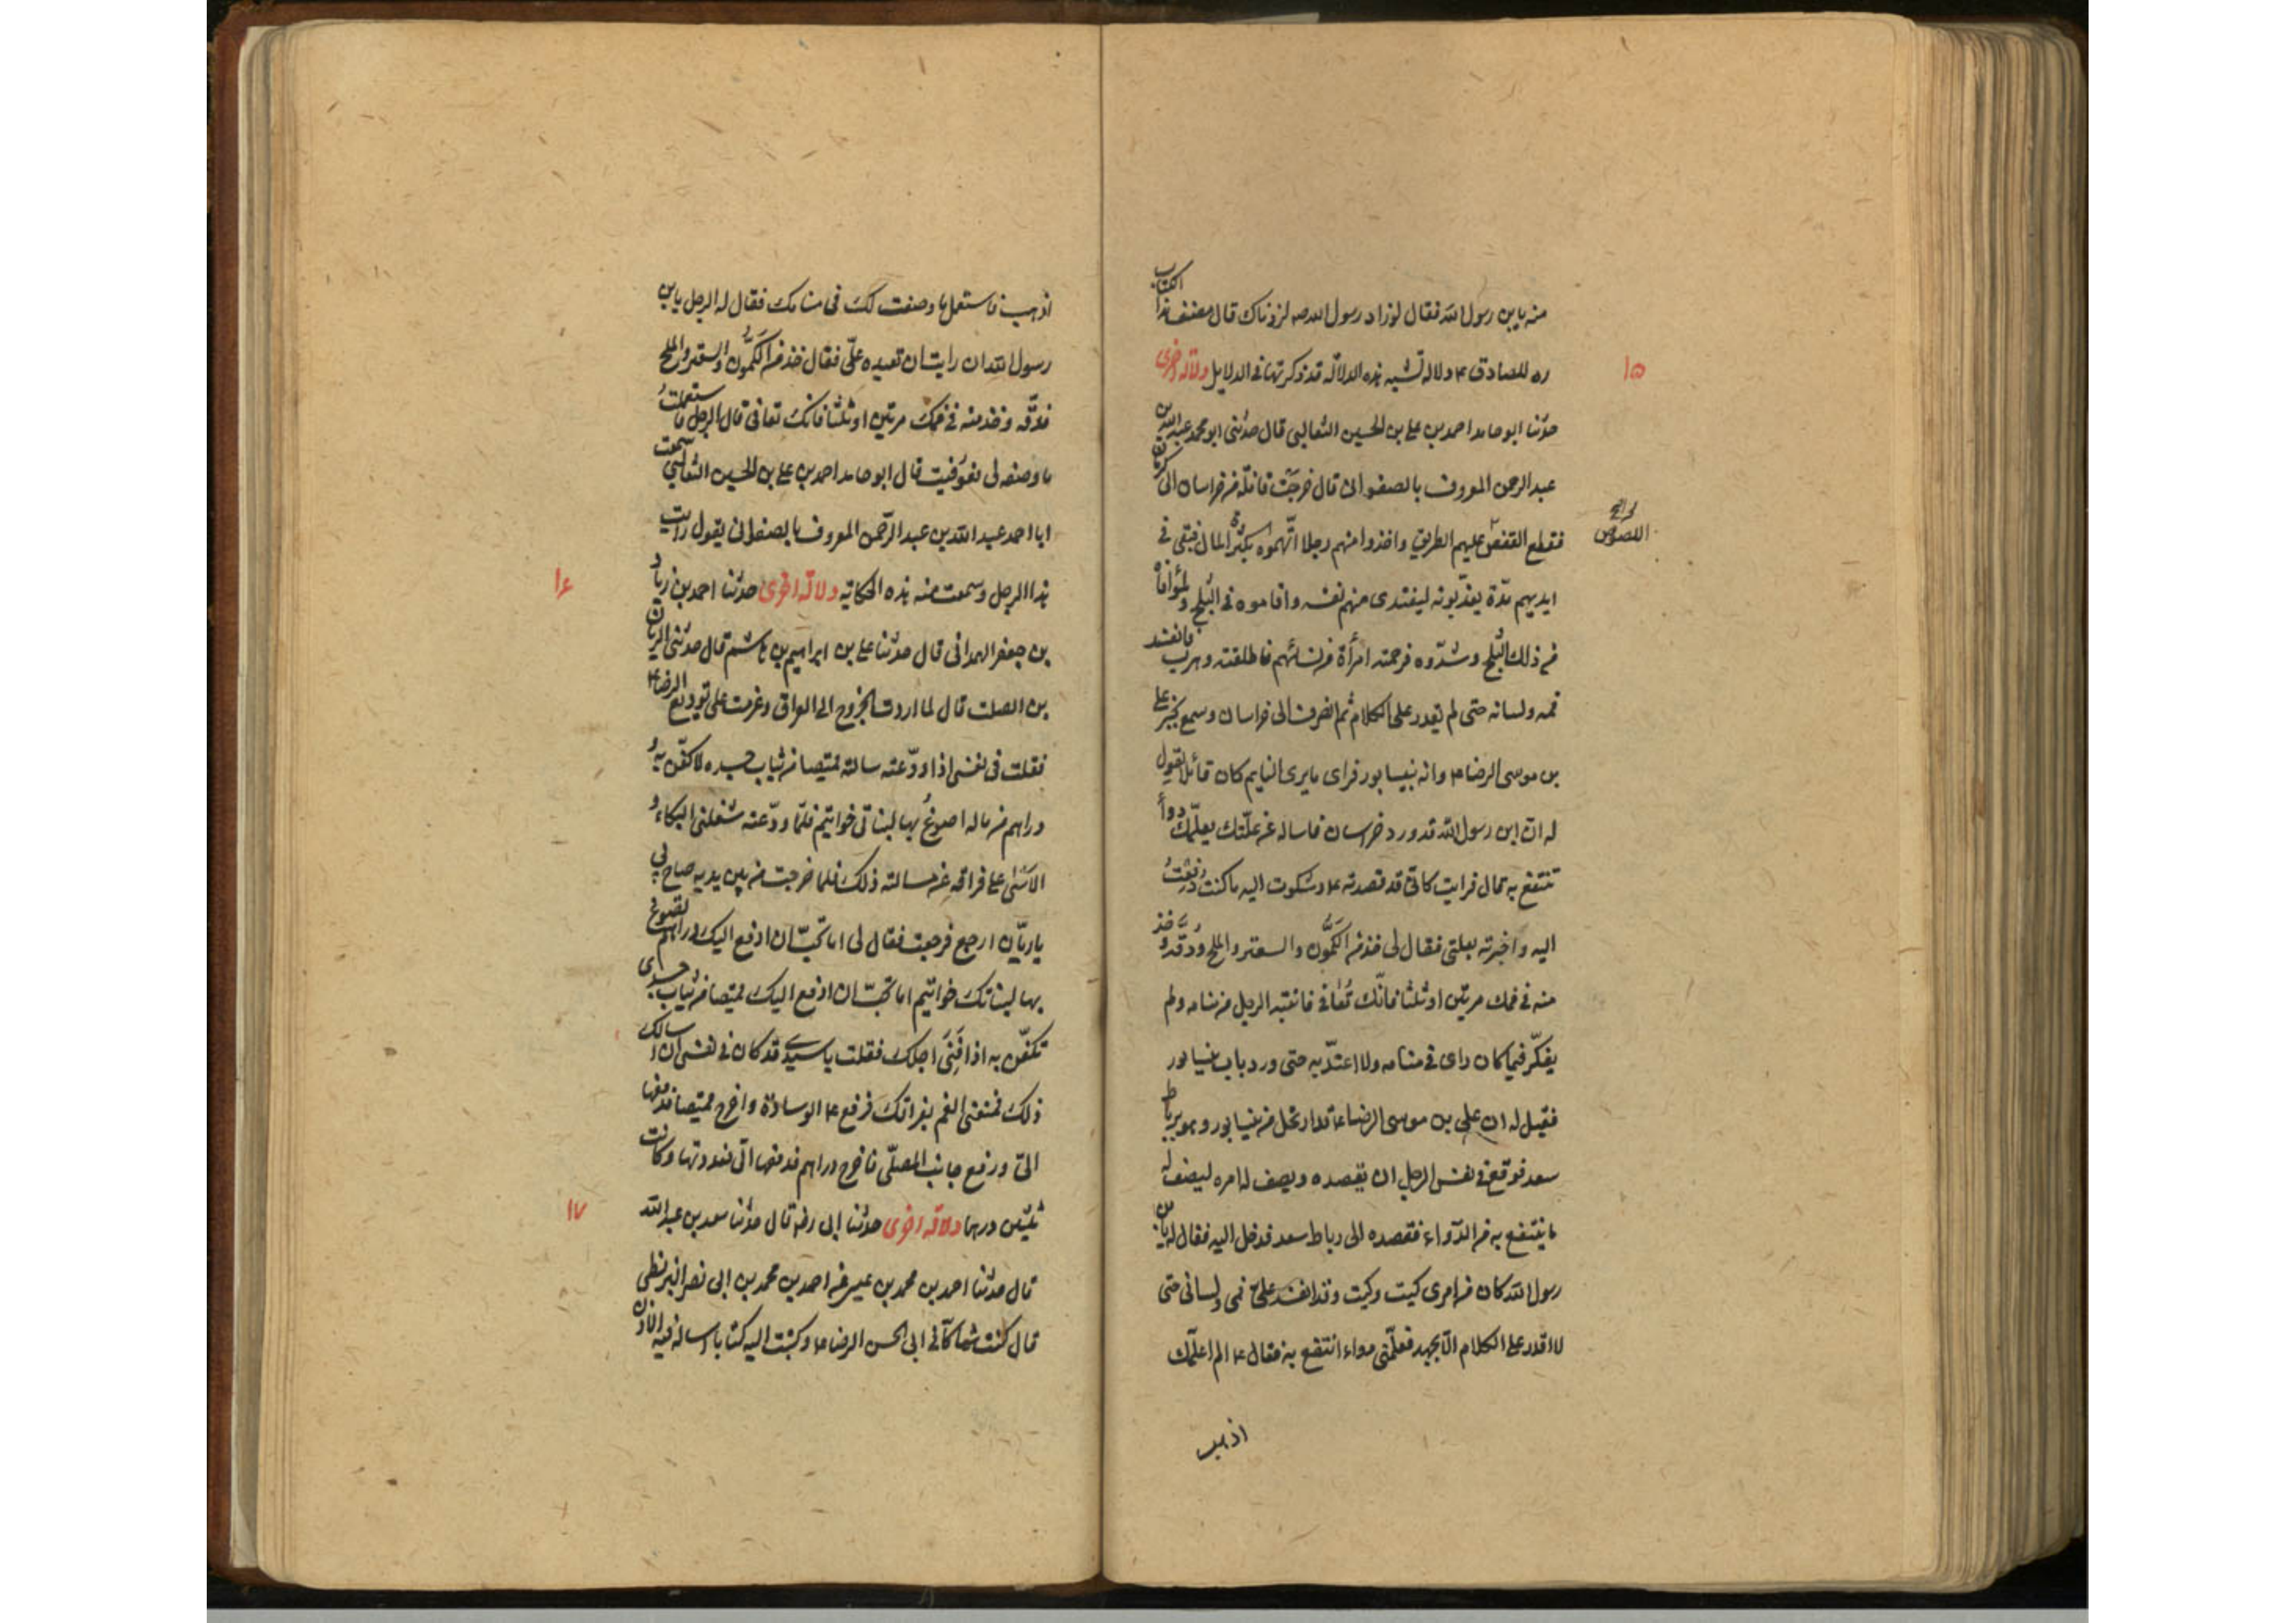 منه يا بن رسول الله فقال لو زاد رسول الله صه لزدناك قال مصنف هذا الكتاب
ره للصادق ع دلالة تشبه هذه الدلالة قد ذكرتها فى الدلايل دلالة اخرى
١٥
حدثنا ابو حامد احمد بن على بن الحسين الثعالبى قال حدثنى ابو محمد عبد الله بن
عبد الرحمن المعروف بالصفوانى قال خرجت قافلة من خراسان الى كرمان
فقطع القفص عليهم الطريق واخذوا منهم رجلا اتهموه بكثرة المال فبقى فى
اللصوص
ايديهم مدة يعذبونه ليفتدى منهم نفسه واقاموه فى الثلج
من ذلك الثلج وشدوه فرحمته امرأة من نسائهم فاطلقته وهرب فانفسد
فمه ولسانه حتى لم يقدر على الكلام ثم انصرف الى خراسان وسمع بخبر على
بن موسى الرضا ع وانه بنيسابور فراى ما يرى النايم كان قائلا يقول
له ان ابن رسول الله قد ورد خراسان فاساله عن علتك يعلمك دواء
تنتفع به قال فرايت كانى قد قصدته ع وشكوت اليه ما كنت دفعت
اليه واخبرته بعلتى فقال لى خذ من الكمون والسعتر والملح ودقه وخذ
منه فى فمك مرتين او ثلثا فانك تعافى فانتبه الرجل من منامه ولم
يفكر فيما كان راى فى منامه ولا اعتد به حتى ورد باب نيسابور
فقيل له ان على بن موسى الرضا ع قد ارتحل من نيسابور وهو برباط
سعد فوقع فى نفس الرجل ان يقصده ويصف له امره ليصف له
ما ينتفع به من الدواء فقصده الى رباط سعد فدخل اليه فقال له يا بن
رسول الله كان من امرى كيت وكيت وقد انفسد على فمى ولسانى حتى
لا اقدر على الكلام الا بجهد فعلمنى دواء انتفع به فقال ع الم اعلمك
اذهب
اذهب فاستعمل ما وصفت لك فى منامك فقال له الرجل يا بن
رسول الله ان رايت ان تعيده على فقال خذ من الكمون والسعتر والملح
فدقه وخذ منه فى فمك مرتين او ثلثا فانك تعافى قال الرجل فاستعملت
ما وصفه لى فعوفيت قال ابو حامد احمد بن على بن الحسين الثعالبى سمعت
ابا احمد عبد الله بن عبد الرحمن المعروف بالصفوانى يقول رايت
هذا الرجل وسمعت منه هذه الحكاية دلالة اخرى حدثنا احمد بن زياد
١٦
بن جعفر الهمدانى قال حدثنا على بن ابراهيم بن هاشم قال حدثنى الريان
بن الصلت قال لما اردت الخروج الى العراق وعزمت على توديع الرضا ع
فقلت فى نفسى اذا ودعته سالته قميصا من ثياب جسده لاكفن به و
دراهم من ماله اصوغ بها لبناتى خواتيم فلما ودعته شغلنى البكاء و
الاسى على فراقه عن مسالته ذلك فلما خرجت من بين يديه صاح بى
يا ريان ارجع فرجعت فقال لى اما تحب ان ادفع اليك دراهم تصوغ
بها لبناتك خواتيم اما تحب ان ادفع اليك قميصا من ثياب جسدى
تكفن به اذا فنى اجلك فقلت يا سيدى قد كان فى نفسى ان اسالك
ذلك فمنعنى الغم بفراقك فرفع ع الوسادة واخرج قميصا فدفعه
الى ورفع جانب المصلى فاخرج دراهم فدفعها الى فعددتها وكانت
ثلثين درهما دلالة اخرى حدثنا ابى رضه قال حدثنا سعد بن عبد الله
١٧
قال حدثنا احمد بن محمد بن عيسى عن احمد بن محمد بن ابى نصر البزنطى
قال كنت شاكا فى ابى الحسن الرضا ع وكتبت اليه كتابا اساله فيه الاذن